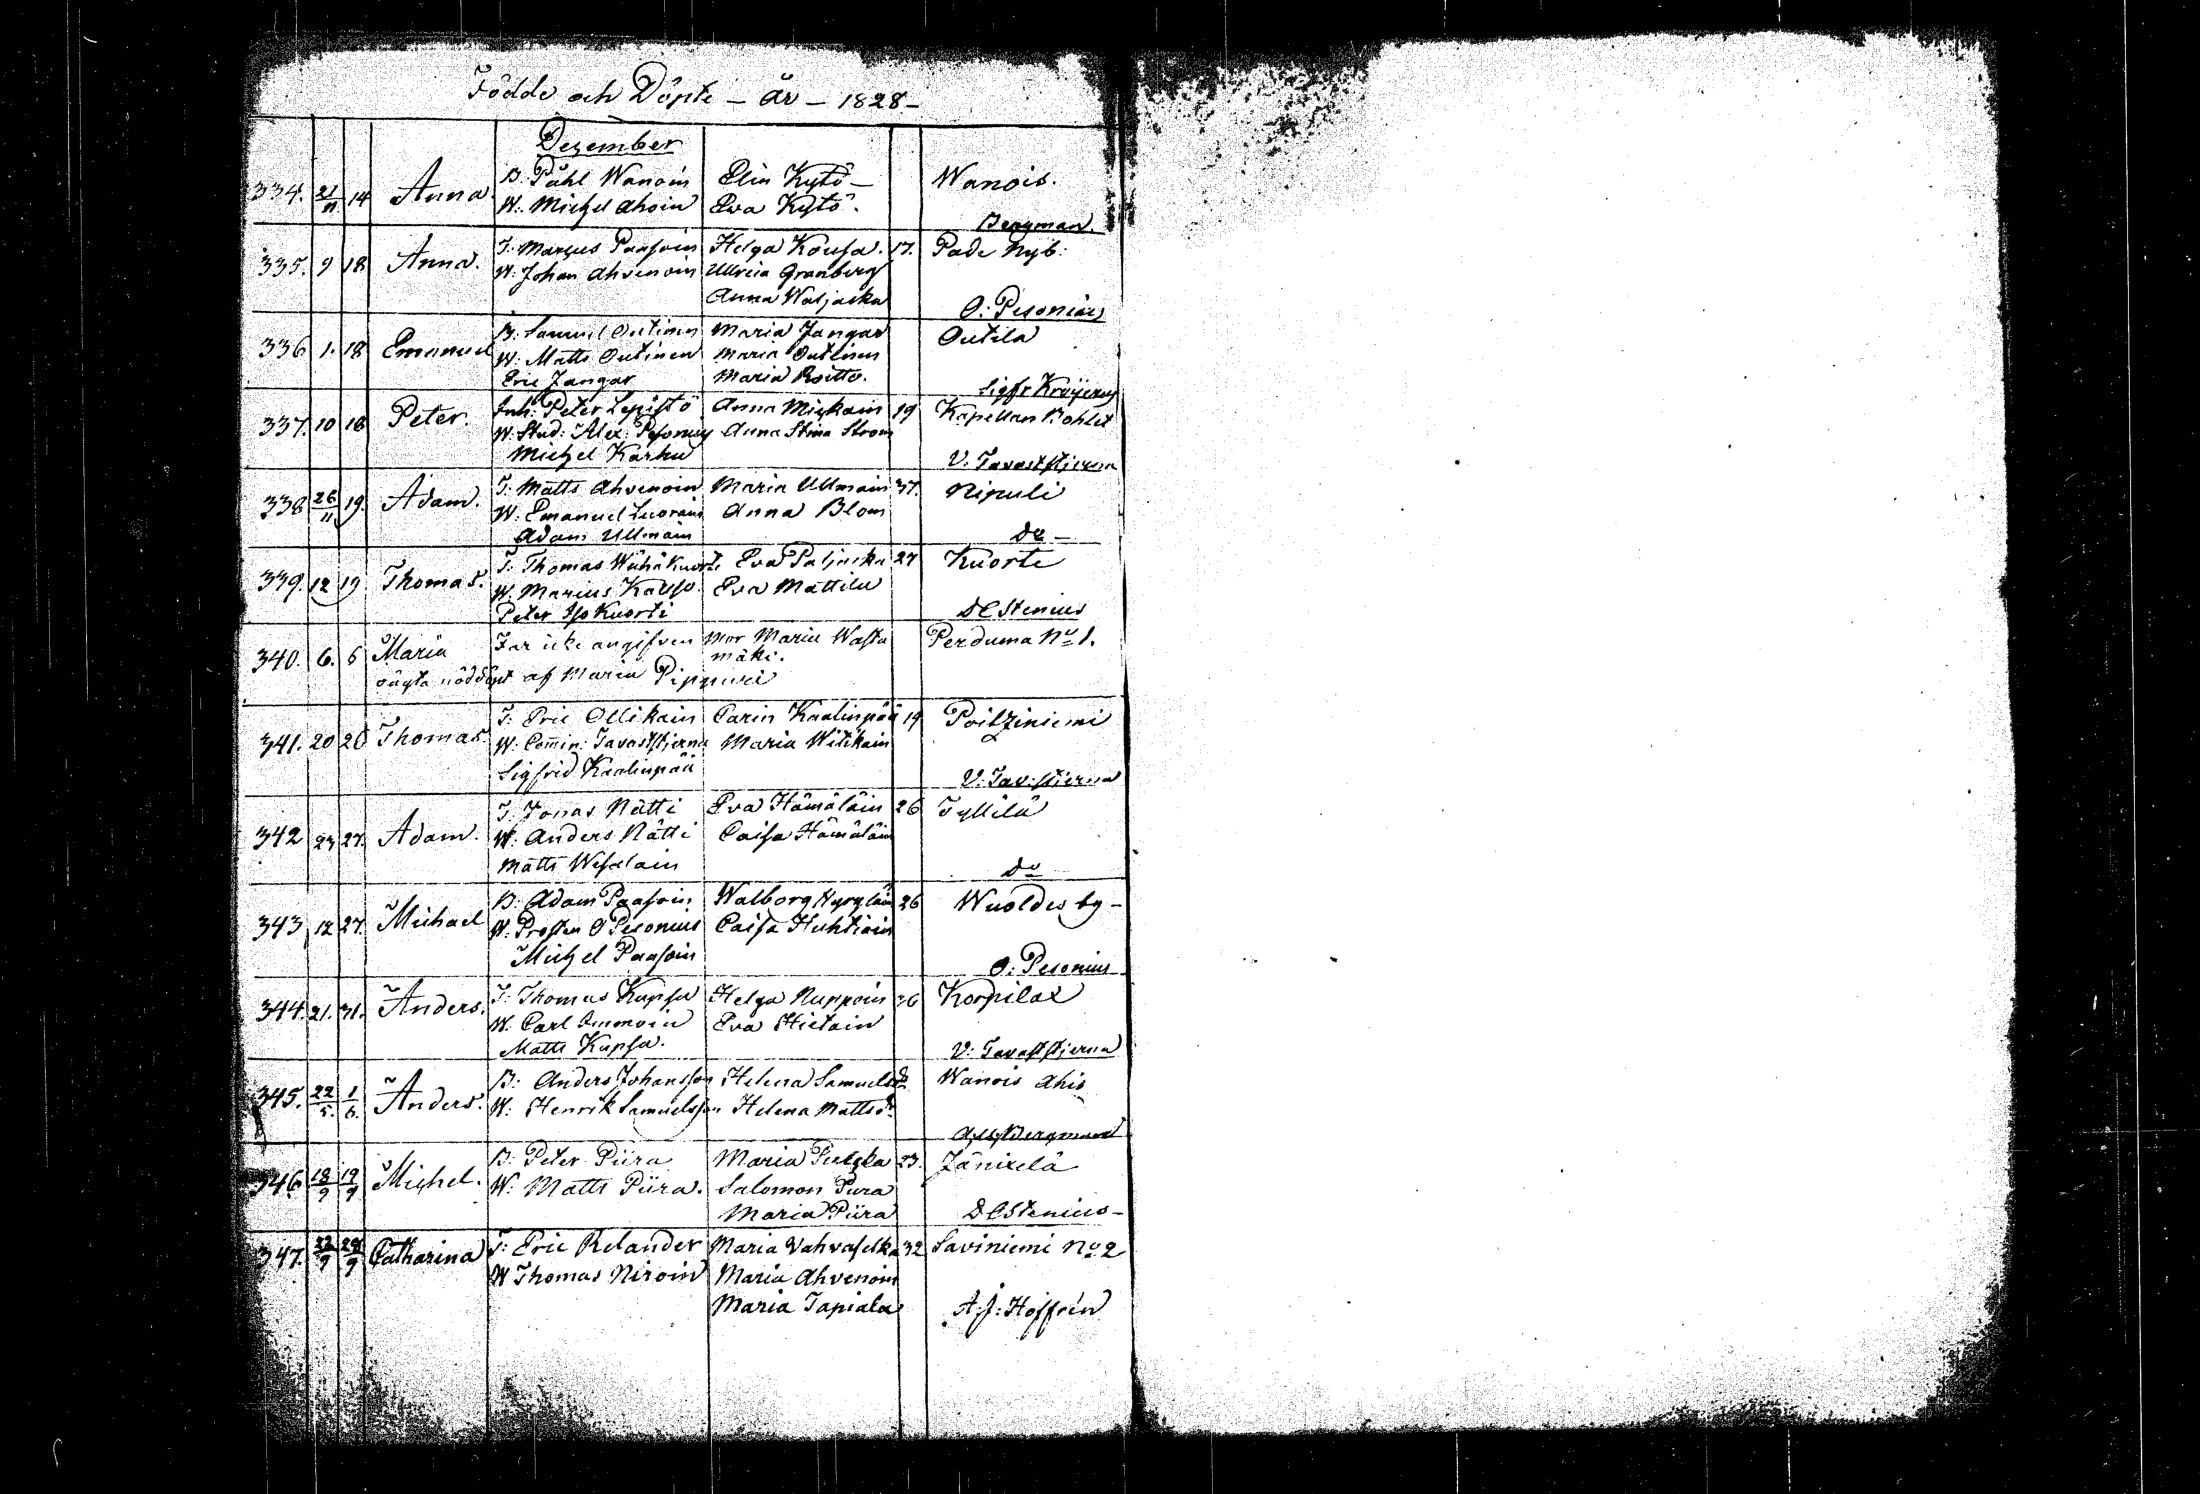 Födde och Döpte – år – 1828 –
Dezember
334. 21/11 14 Anna. B. Påhl Wanoin Elin Kytö – Wanois.
W: Michel Ahoin Eva Kytö.
Bergman
335. 9 18 Anna. T: Marcus Paasoin Helga Kousa. 17. Pade Nyb:
W: Johan Ahvenoin Ullrica Granberg
Anna Waljacka
O: Pesonius
336 1. 18 Emanuel B. Samuel Outinen Maria Jangar Outila
W: Matts Outinen Maria Outinen
Eric Jangar Maria Roitto.
Sigfr Kröijerus
337. 10 18 Peter. Inh: Peter Lepistö Anna Mickain 19 Kapellan Bohle
W: Stud: Alex: Pesonius Anna Stina Strom
Michel Karhu
V. Tavaststjerna
338 26/11 19. Adam. T: Matts Ahvenoin Maria Ullmain 37. Nipuli
W. Emanuel Luorain Anna Blom
Adam Ullmain
do –
339. 12 19 Thomas. T: Thomas Wähäkuorti Eva Paljacka 27 Kuorte
W. Marcus Kauso. Eva Mattila
Peter Iso Kuorti
DE Stenius
340. 6. 6 Maria Far icke angifven Mor Maria Wasta Perduma No 1.
mäki.
oägta nöddöpt af Maria Pippuri
341. 20 26 Thomas T: Eric Ollikain Carin Kaalinpää 19 Poitziniemi
W: Comin: Tavaststjerna Maria Witikain
Sigfrid Kaalinpää
V: Tav:stjerna
342 23 27. Adam. T. Jonas Nätti Eva Hämäläin 26 Tyllilä
W. Anders Nätti Caisa Hämäläin
Matts Wesalain
do
343 12 27. Michael B: Adam Paasoin Walborg Hyryläin 26 Wuoldes by –
W. Prosten O Pesonius Caisa Huhtiain
Michel Paasoin
O: Pesonius
344. 21. 31. Anders. T: Thomas Kupsa Helga Nuppoin 36 Korpilax
W. Carl Ammoin Eva Hietain
Matts Kupsa.
V: Tavaststjerna
345. 22/5. 1/6. Anders. B: Anders Johansson Helena Samuelsdr Wanois Ahis
W: Henrik Samuelsson Helena Mattsdr
Bergman
346 18/9 19/9 Michel. B: Peter Piira Maria 33. Jänixelä
W: Matts Piira. Salomon Pura
Maria Piira DE Stenius –
347. 22/9 29/9 Catharina T: Eric Relander Maria Vahvaselkä 32 Saviniemi No 2
W Thomas Niroin Maria Ahvenoin
Maria Tapiala A:J: Hoffrén